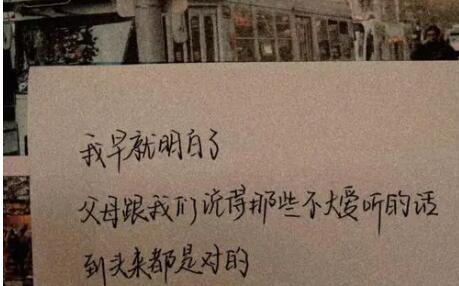 我早就明白了
父母跟我们说得那些不大爱听的话
到头来都是对的